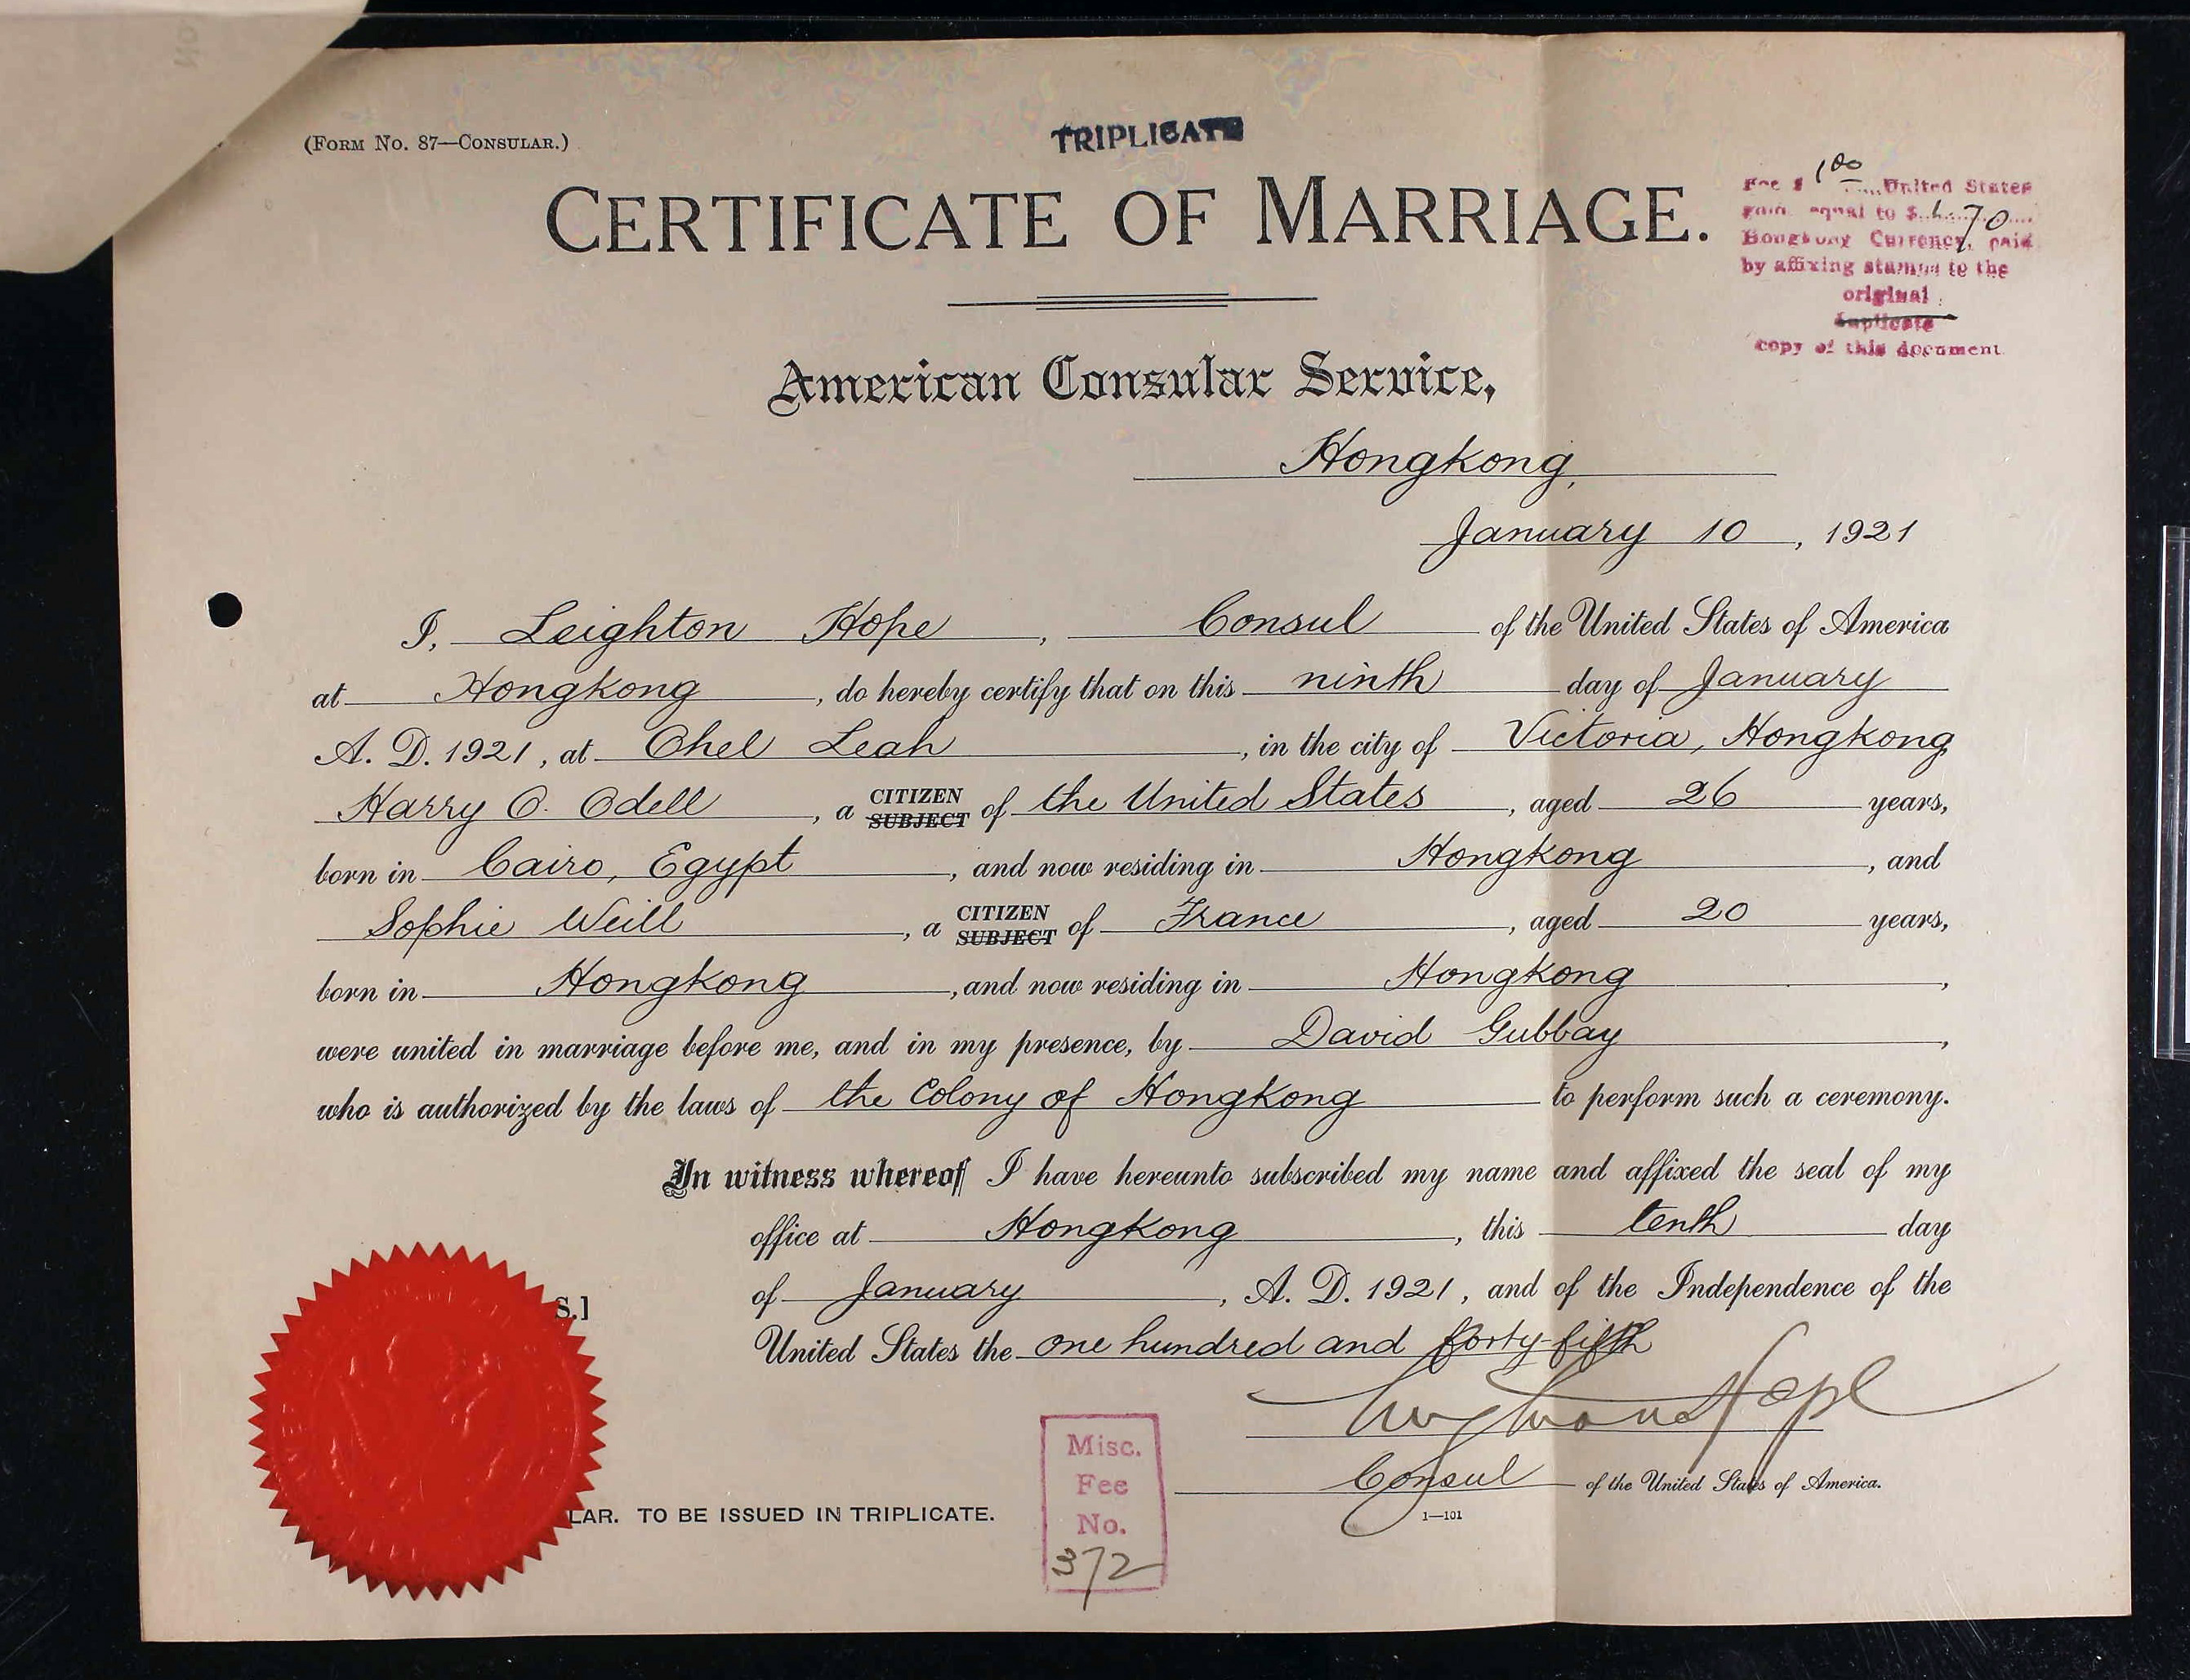 (FORM NO. 87—CONSULAR.)
TRIPLICATE
CERTIFICATE OF MARRIAGE.
Fee $ 1 00 United States
gold equal to $ 1.70
Hongkong Currency, paid
by affixing stamps to the
original
duplicate
copy of this document
American Consular Service,
Hongkong,
January 10, 1921
I, Leighton Hope, Consul of the United States of America
at Hongkong, do hereby certify that on this ninth day of January
A. D. 1921, at Ohel Leah, in the city of Victoria, Hongkong
Harry O. Odell, a CITIZEN SUBJECT of the United States, aged 26 years,
born in Cairo, Egypt, and now residing in Hongkong, and
Sophie Weill, a CITIZEN SUBJECT of France, aged 20 years,
born in Hongkong, and now residing in Hongkong,
were united in marriage before me, and in my presence, by David Gubbay,
who is authorized by the laws of the Colony of Hongkong to perform such a ceremony.
In witness whereof I have hereunto subscribed my name and affixed the seal of my
office at Hongkong, this tenth day
S.] of January, A. D. 1921, and of the Independence of the
United States the one hundred and forty-fifth
Leighton Hope
Consul of the United States of America.
LAR. TO BE ISSUED IN TRIPLICATE.
1—101
Misc.
Fee
No.
372